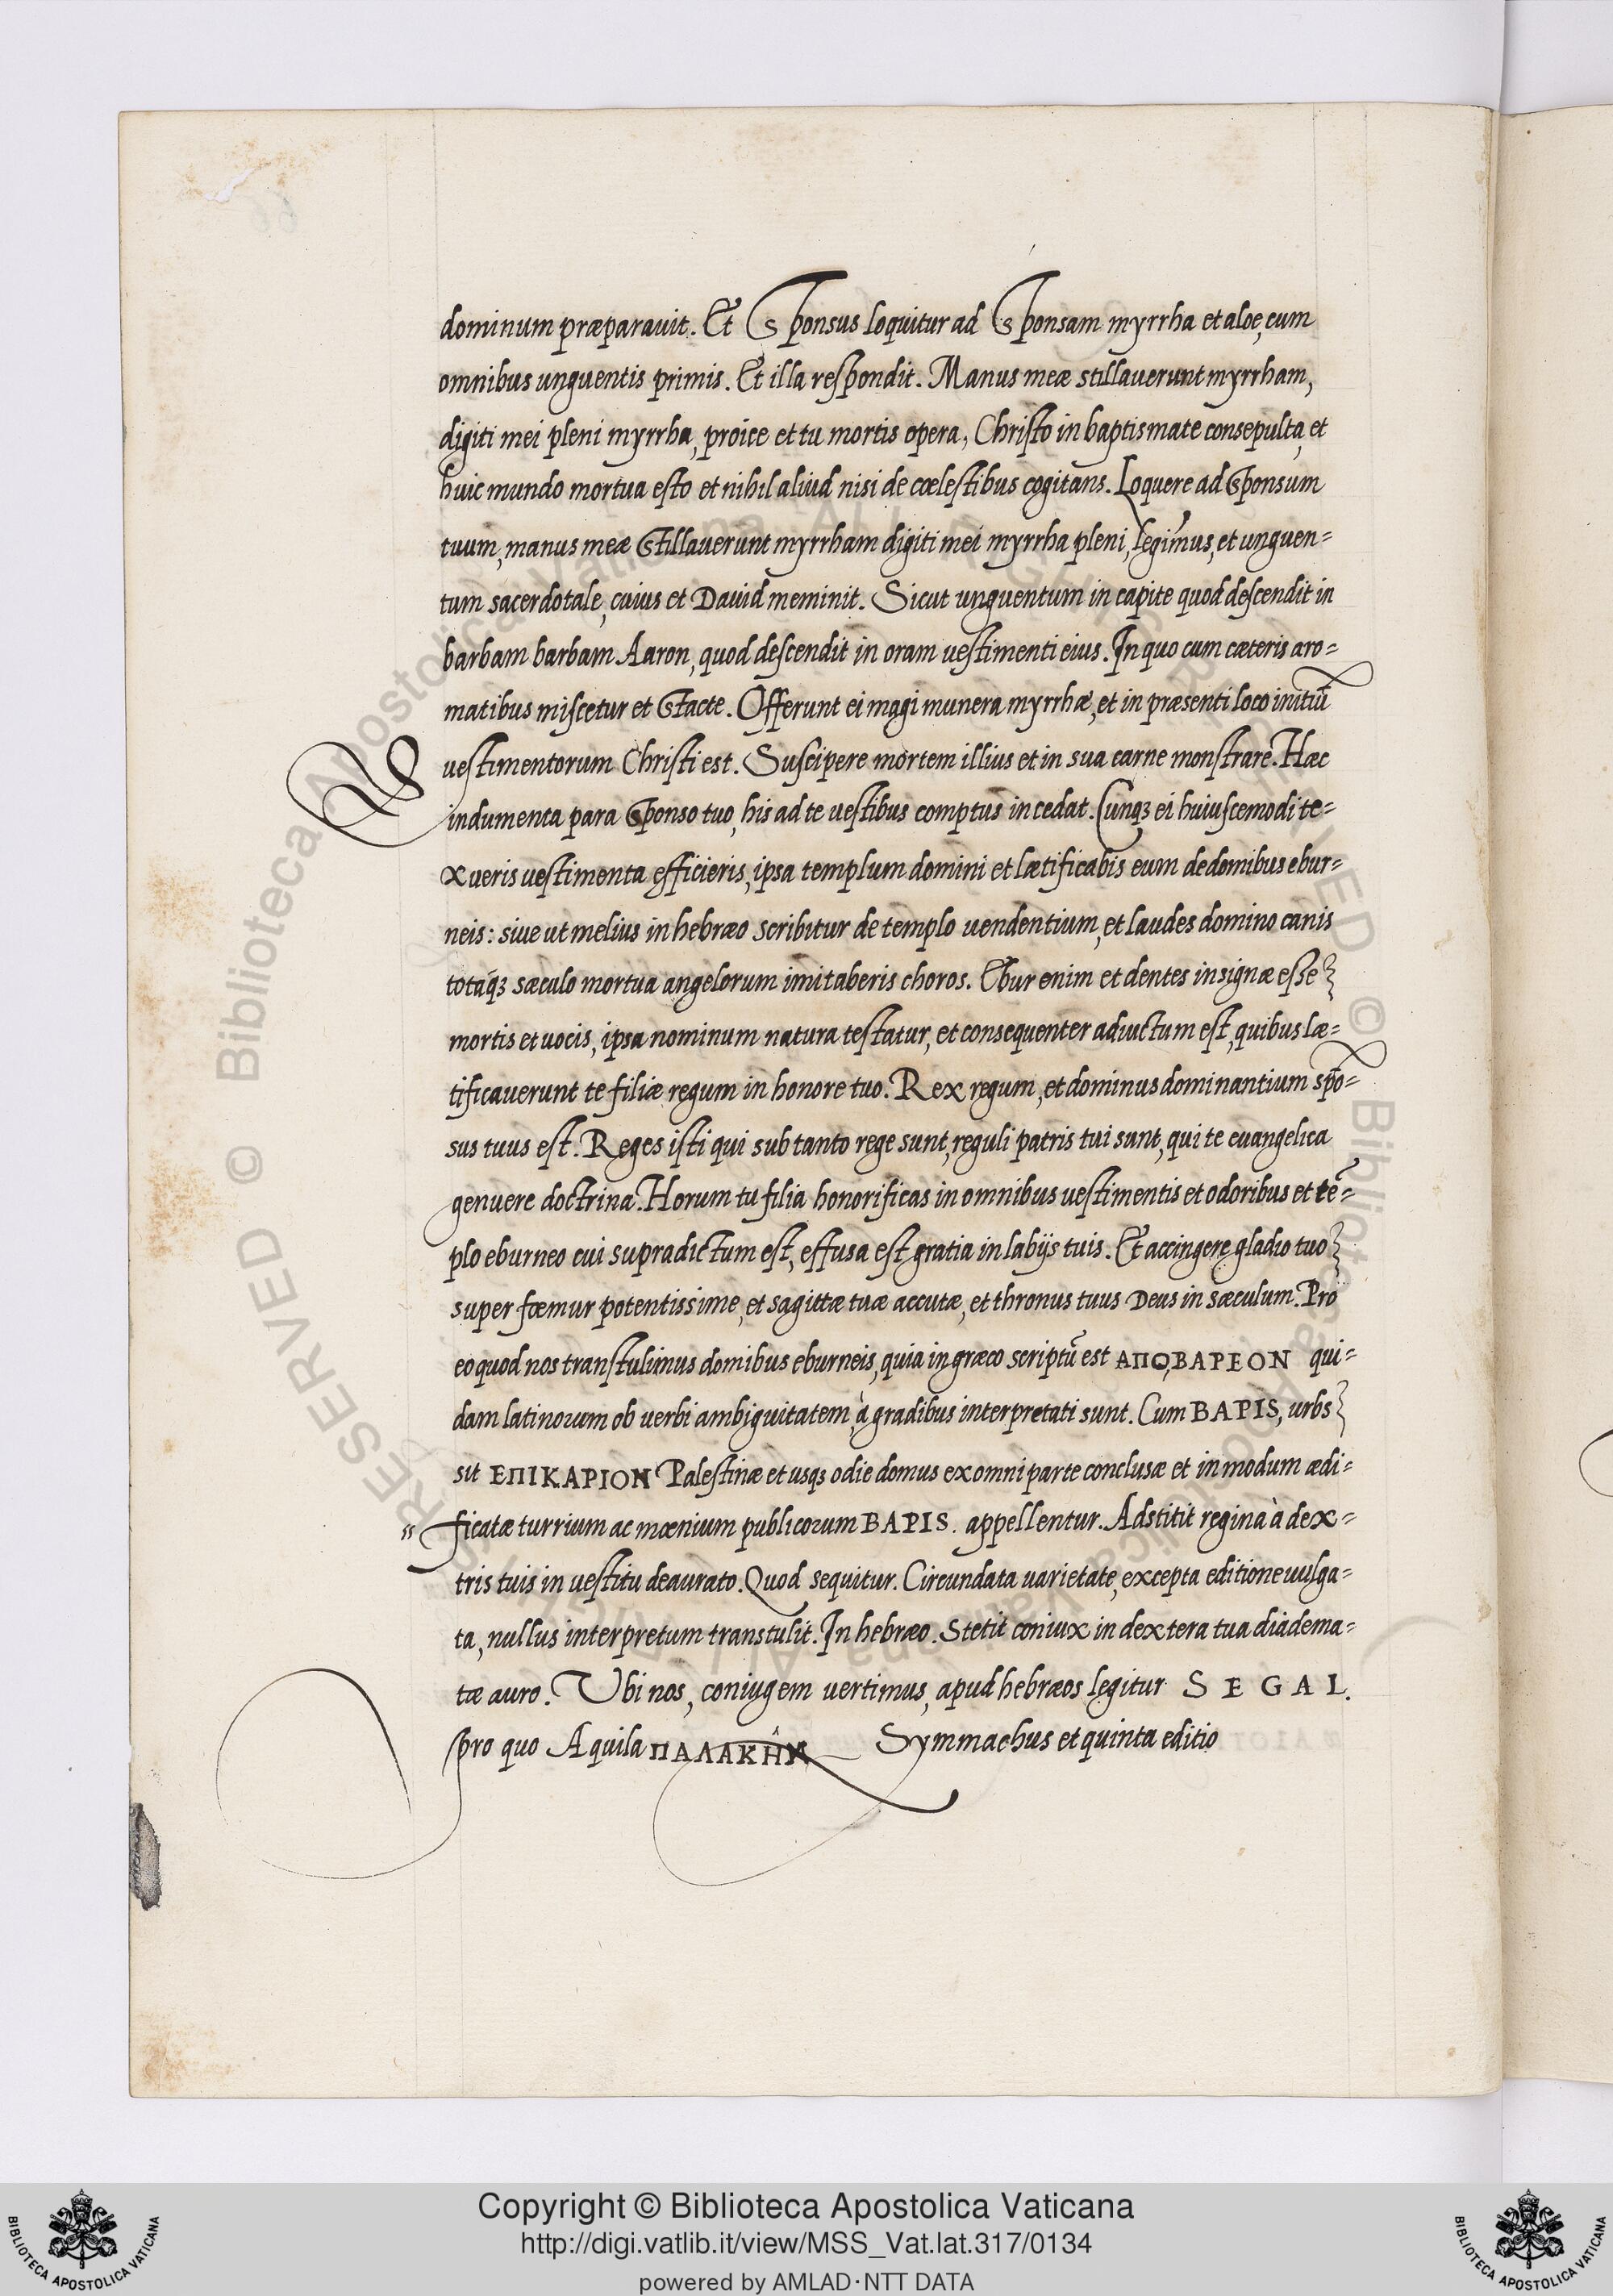 dominum præparauit. Et Sponsus loquitur ad Sponsam myrrha et aloe, cum
omnibus unguentis primis. Et illa respondit. Manus meæ stillauerunt myrrham,
digiti mei pleni myrrha, proice et tu mortis opera, Christo in baptismate consepulta, et
huic mundo mortua esto et nihil aliud nisi de cœlestibus cogitans. Loquere ad Sponsum
tuum, manus meæ Stillauerunt myrrham digiti mei myrrha pleni, legimus, et unguen=
tum sacerdotale, cuius et Dauid meminit. Sicut unguentum in capite quod descendit in
barbam barbam Aaron, quod descendit in oram uestimenti eius. In quo cum cæteris aro=
matibus miscetur et Stacte. Offerunt ei magi munera myrrhæ, et in præsenti loco initiū
uestimentorum Christi est. Suscipere mortem illius et in sua carne monstrare. Hæc
indumenta para Sponso tuo, his ad te uestibus comptus incedat. Cunqȝ ei huiuscemodi te=
xueris uestimenta efficieris, ipsa templum domini et lætificabis eum de domibus ebur=
neis: siue ut melius in hebræo scribitur de templo uendentium, et laudes domino canis
totáqȝ sæculo mortua angelorum imitaberis choros. Ebur enim et dentes insignæ esse
mortis et uocis, ipsa nominum natura testatur, et consequenter adiuctum est, quibus læ=
tificauerunt te filiæ regum in honore tuo. Rex regum, et dominus dominantium spō=
sus tuus est. Reges isti qui sub tanto rege sunt, reguli patris tui sunt, qui te euangelica
genuere doctrina. Horum tu filia honorificas in omnibus uestimentis et odoribus et tē=
plo eburneo cui supradictum est, effusa est gratia in labijs tuis. Et accingere gladio tuo
super fœmur potentissime, et sagittæ tuæ accutæ, et thronus tuus Deus in sæculum. Pro
eo quod nos transtulimus domibus eburneis, quia in græco scriptū est ΑΠΟ,ΒΑΡΕΟΝ qui=
dam latinorum ob uerbi ambiguitatem, à gradibus interpretati sunt. Cum ΒΑΡΙS, urbs
sit ΕΠΙΚΑΡΙΟΝ Palestinæ et usqȝ odie domus ex omni parte conclusæ et in modum ædi=
" ficatæ turrium ac mœnium publicorum ΒΑΡΙS. appellentur. Adstitit regina à dex=
tris tuis in uestitu deaurato. Quod sequitur. Circundata uarietate, excepta editione uulga=
ta, nullus interpretum transtulit. In hebræo. Stetit coniux in dextera tua diadema=
tæ auro. Vbi nos, coniugem uertimus, apud hebræos legitur S E G A L.
pro quo Aquila ΠΑΛΑΚΗ̂Ν Symmachus et quinta editio
Copyright © Biblioteca Apostolica Vaticana
http://digi.vatlib.it/view/MSS_Vat.lat.317/0134
powered by AMLAD·NTT DATA
BIBLIOTECA APOSTOLICA VATICANA
BIBLIOTECA APOSTOLICA VATICANA